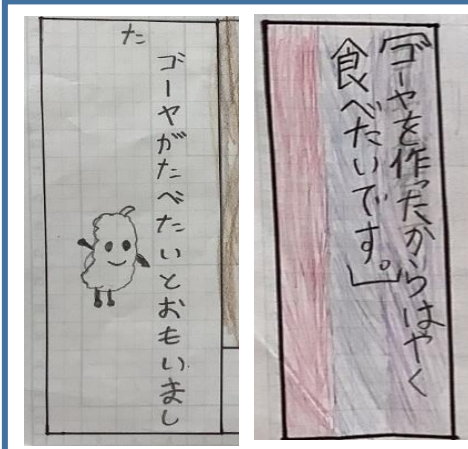 ゴーヤがたべたいとおもいまし
た
「ゴーヤを作ったからはやく
食べたいです。」